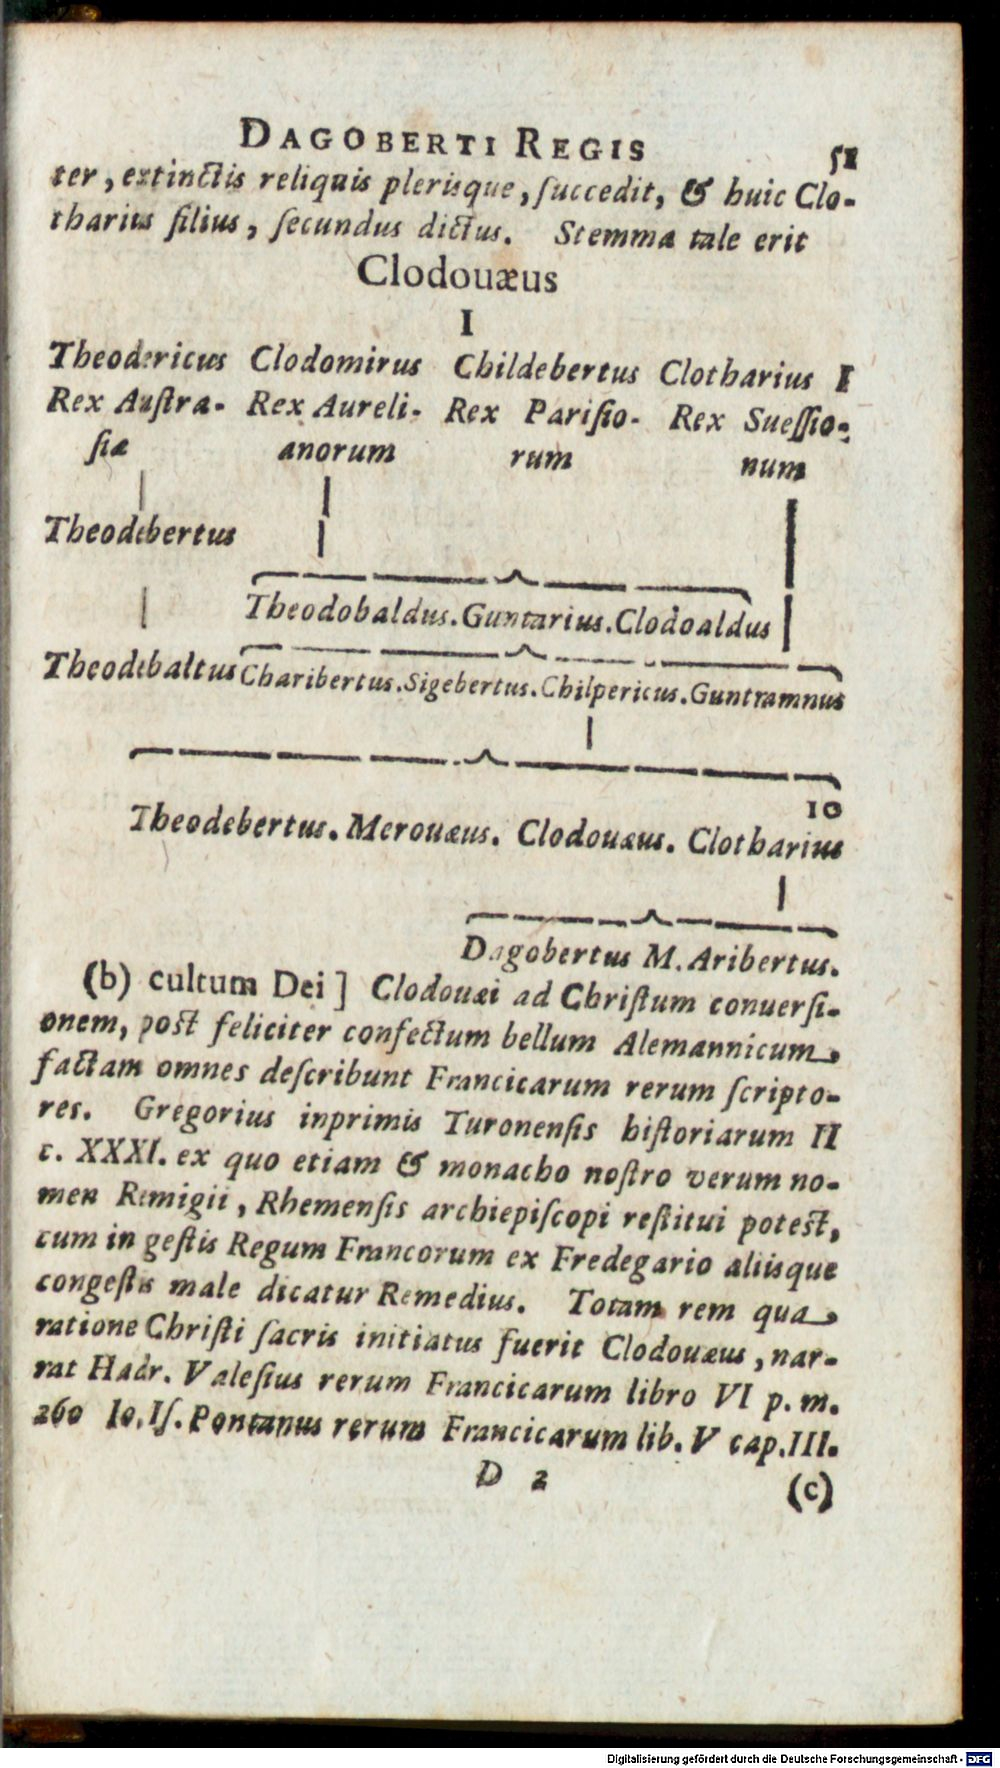 DAGOBERTI REGIS 51
ter, extinctis reliquis plerisque, ſuccedit, & huic Clo-
tharius filius, ſecundus dictus. Stemma tale erit
Clodouæus
I
Theodericus Clodomirus Childebertus Clotharius I
Rex Auſtra- Rex Aureli- Rex Pariſio- Rex Sueſſio-
ſiæ anorum rum num
Theodebertus
Theodobaldus. Guntarius. Clodoaldus
Theodebaltus Charibertus. Sigebertus. Chilpericus. Guntramnus
10
Theodebertus. Merouæus. Clodouæus. Clotharius
Dagobertus M. Aribertus.
(b) cultum Dei] Clodouæi ad Chriſtum conuerſi-
onem, poſt feliciter confectum bellum Alemannicum,
factam omnes deſcribunt Francicarum rerum ſcripto-
res. Gregorius inprimis Turonenſis hiſtoriarum II
c. XXXI. ex quo etiam & monacho noſtro verum no-
men Remigii, Rhemenſis archiepiſcopi reſtitui poteſt,
cum in geſtis Regum Francorum ex Fredegario aliisque
congeſtis male dicatur Remedius. Totam rem qua
ratione Chriſti ſacris initiatus fuerit Clodouæus, nar-
rat Hadr. Valeſius rerum Francicarum libro VI p. m.
260 Io. Iſ. Pontanus rerum Francicarum lib. V cap. III.
D 2 (c)
Digitalisierung gefördert durch die Deutsche Forschungsgemeinschaft - DFG